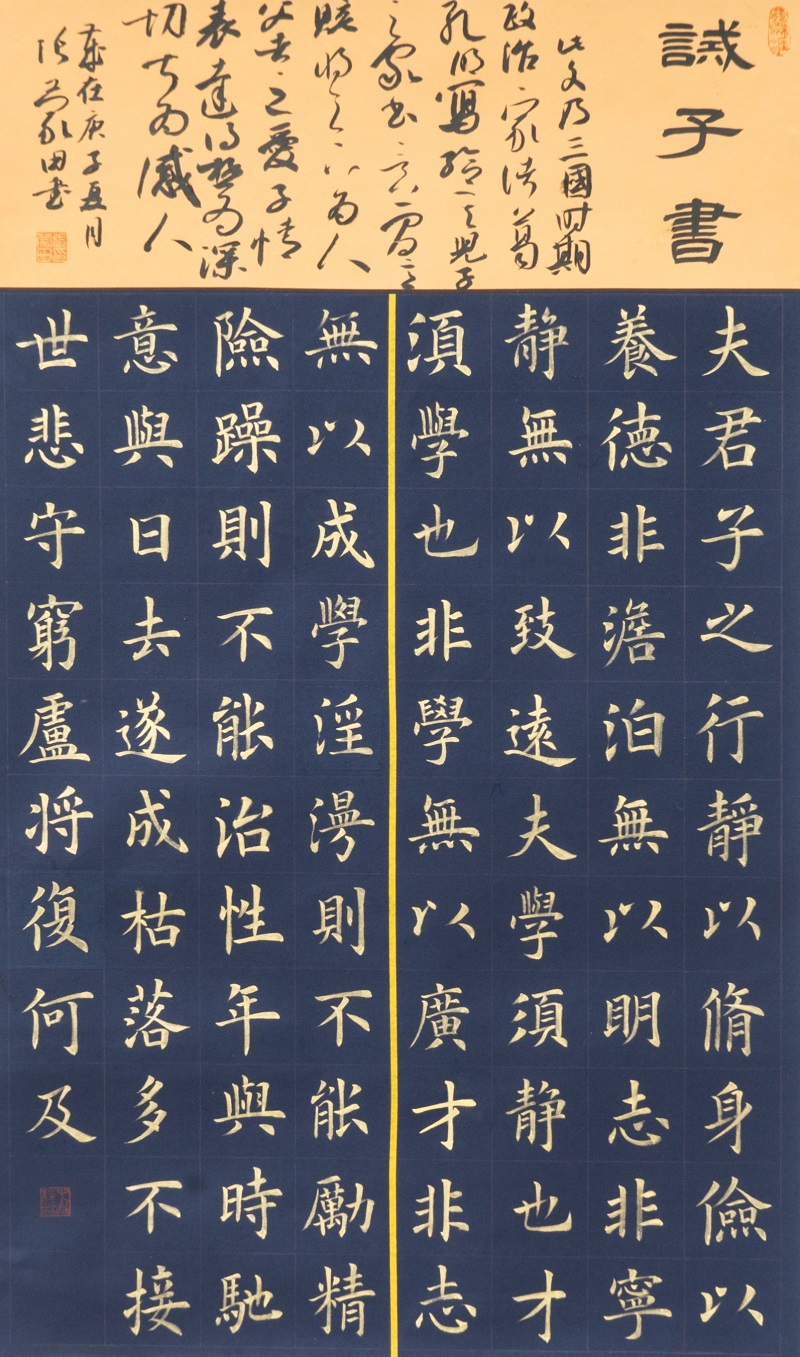 誡子書
此文乃三國时期
政治家诸葛
孔明寫给其兒子
之家書言簡意
賅将之为人
父者之愛子情
表達得極为深
切为感人
歲在庚子夏月
田書
夫君子之行靜以脩身儉以
養德非澹泊無以明志非寧
静無以致遠夫學須静也才
須學也非學無以廣才非志
無以成學淫漫則不能勵精
險躁則不能治性年與時馳
意與日去遂成枯落多不接
世悲守窮盧将復何及